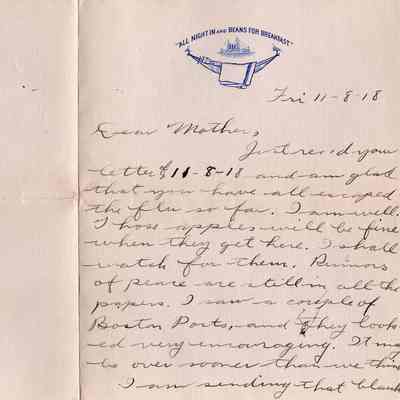 "ALL NIGHT IN AND BEANS FOR BREAKFAST"
Fri 11-8-18
Dear Mother,
Just rec'd your
letter of 11-8-18 and am glad
that you have all escaped
the flu so far. I am well.
Those apples will be fine
when they get here. I shall
watch for them. Rumors
of peace are still in all the
papers. I saw a couple of
Boston Posts, and they look-
ed very encouraging. It may
be over sooner than we think
I am sending that blank